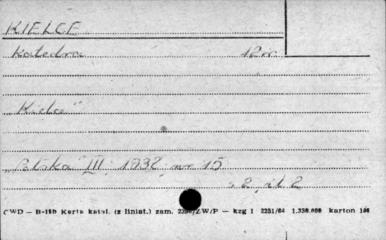 KIELCE
Katedra 12 w.
"Kielce"
"Polska" III, 1932, nr 15
s. 2, il. 2
CWD — B-11b Karta katal. (z liniat.) zam. Z/W/P — kzg 1 2231/64 1.330.000 karton